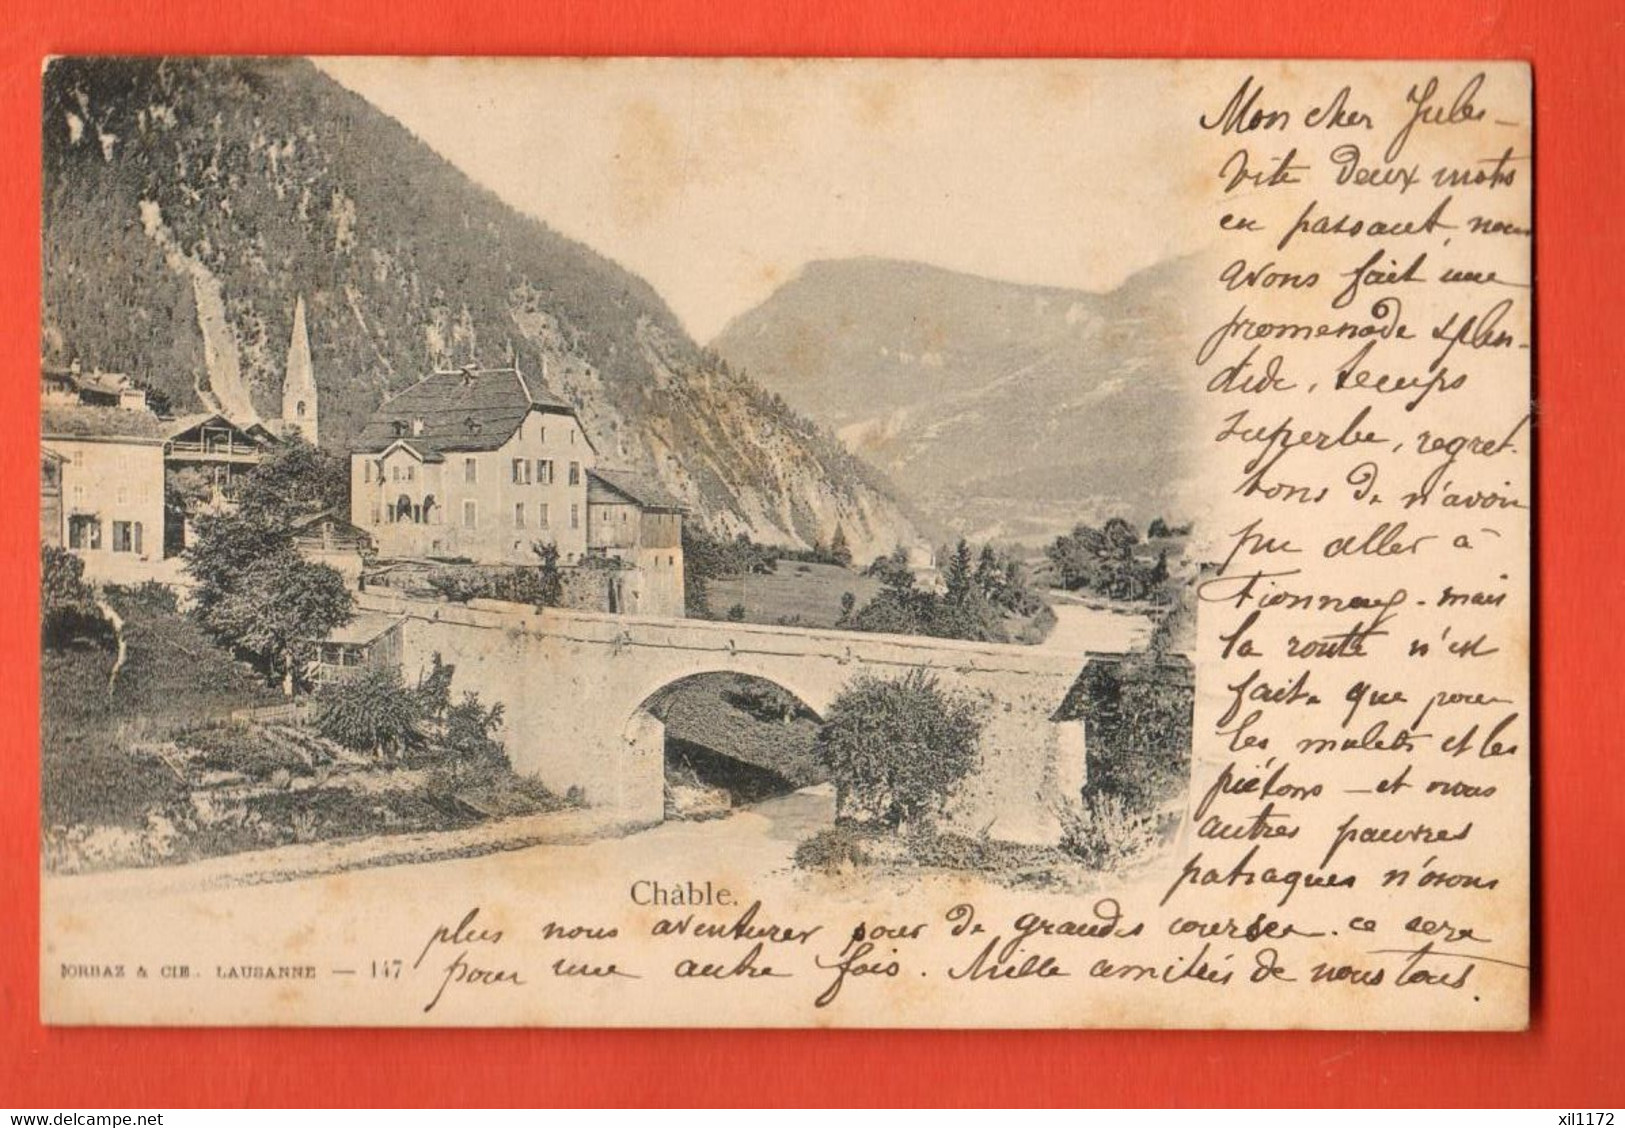 Mon cher Jules -
vite deux mots
en passant, nous
avons fait une
promenade splen-
dide, temps
superbe, regret-
tons de n'avoir
pu aller à
Fionney - mais
la route n'est
faite que pour
les mulets et les
piétons - et nous
autres pauvres
patraques n'osons
plus nous aventurer pour de grandes courses. ce sera
pour une autre fois. Mille amitiés de nous tous.
Châble.
JORDAZ & CIE. LAUSANNE — 147
delcampe.net
xil1172